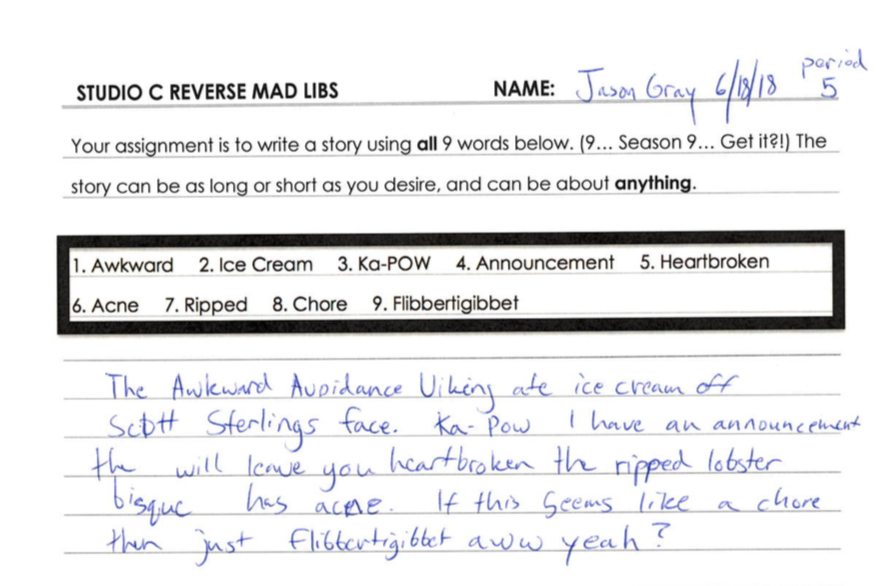 STUDIO C REVERSE MAD LIBS NAME: Jason Gray 6/18/18 period 5
Your assignment is to write a story using all 9 words below. (9... Season 9... Get it?!) The
story can be as long or short as you desire, and can be about anything.
1. Awkward 2. Ice Cream 3. Ka-POW 4. Announcement 5. Heartbroken
6. Acne 7. Ripped 8. Chore 9. Flibbertigibbet
The Awkward Avoidance Viking ate ice cream off
Scott Sterlings face. Ka-Pow I have an announcement
the will leave you heartbroken the ripped lobster
bisque has acne. If this seems like a chore
then just flibbertigibbet aww yeah?